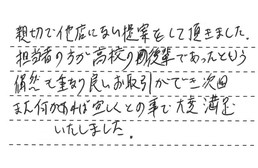 親切で他店にない提案をして頂きました。
担当者の方が高校の後輩であったという
偶然も重なり良いお取引ができ次回
また何かあれば宜しくとの事で大変満足
いたしました。